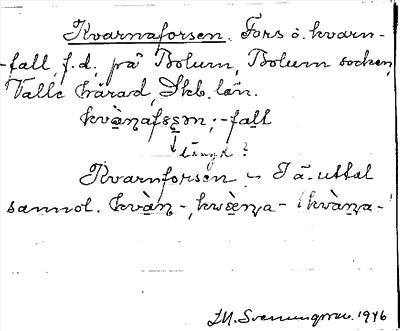 Kvarnaforsen. Fors o. kvarn-
-fall, f.d., på Bolum, Bolum socken,
Valle härad, Skb. län.
kvàṇafsẹṣn, -fall
↓ längd?
Kvarnforsen - I ä. uttal
sannol. kvàṇ-, kwèṇa- (kvàṇa-
S.M. Svenungsson. 1946